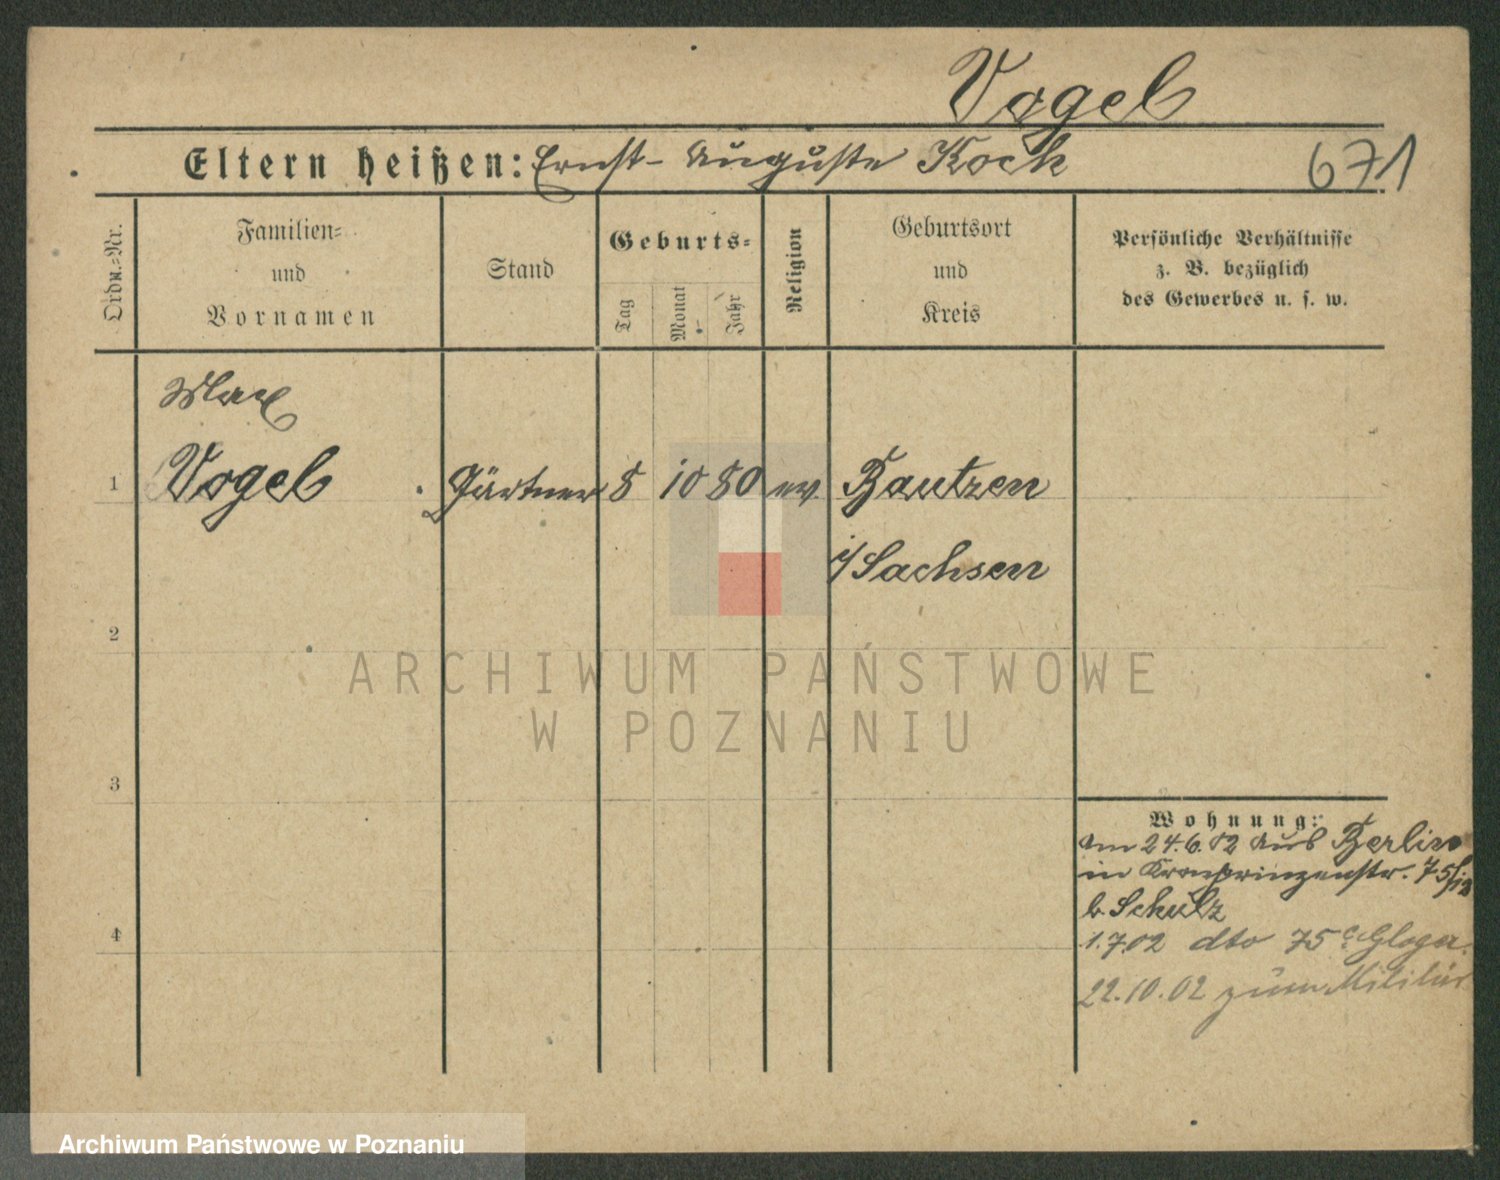 Vogel
Eltern heißen: Ernst - Auguste Koch
671
Ordn.=Nr.
Familien=
und
Vornamen
Stand
Geburts=
Tag
Monat
Jahr
Religion
Geburtsort
und
Kreis
Persönliche Verhältnisse
z. B. bezüglich
des Gewerbes u. s. w.
Max
1 Vogel Gärtner 8 10 80 ev. Bautzen
i/Sachsen
2
ARCHIWUM PAŃSTWOWE
W POZNANIU
3
Wohnung:
Am 24.6.02 aus Berlin
in Kronprinzenstr. 75
b. Schulz
4
1.7.02 dto 75 c Gloger.
22.10.02 zum Militär
Archiwum Państwowe w Poznaniu